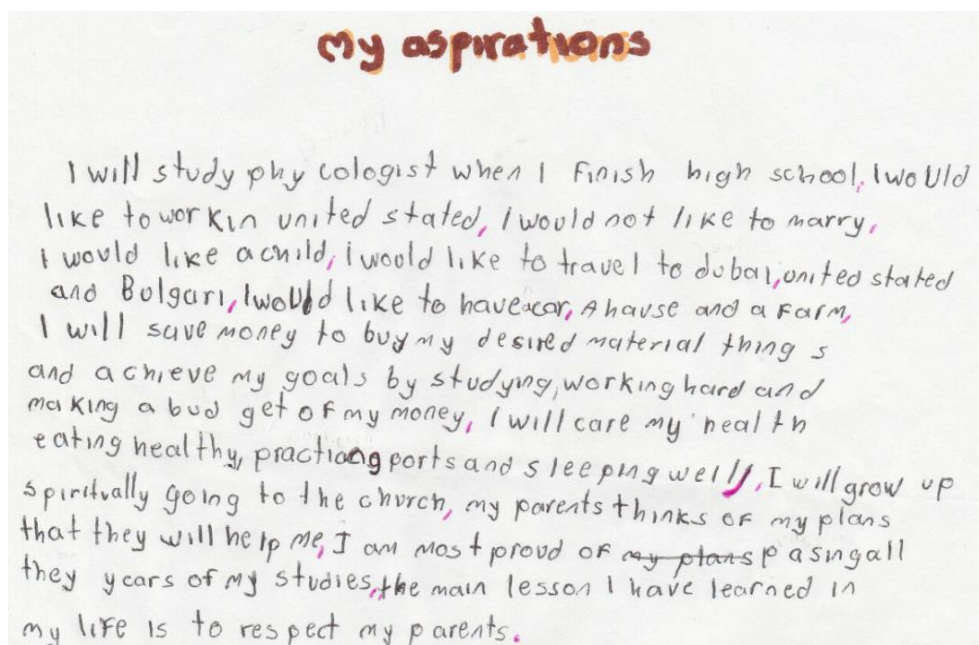 my aspirations
I will study phy cologist when I finish high school, I would
like to work in united stated, I would not like to marry,
i would like a child, i would like to travel to dubai, united stated
and Bulgari, I would like to have a car, A hause and a Farm,
I will save money to buy my desired material thing s
and achieve my goals by studying, working hard and
making a bud get of my money, I will care my health
eating healthy, practicing ports and sleeping well, I will grow up
spiritually going to the church, my parents thinks of my plans
that they will help me, I am most proud of my plans pasing all
they years of my studies, the main lesson I have learned in
my life is to respect my parents.